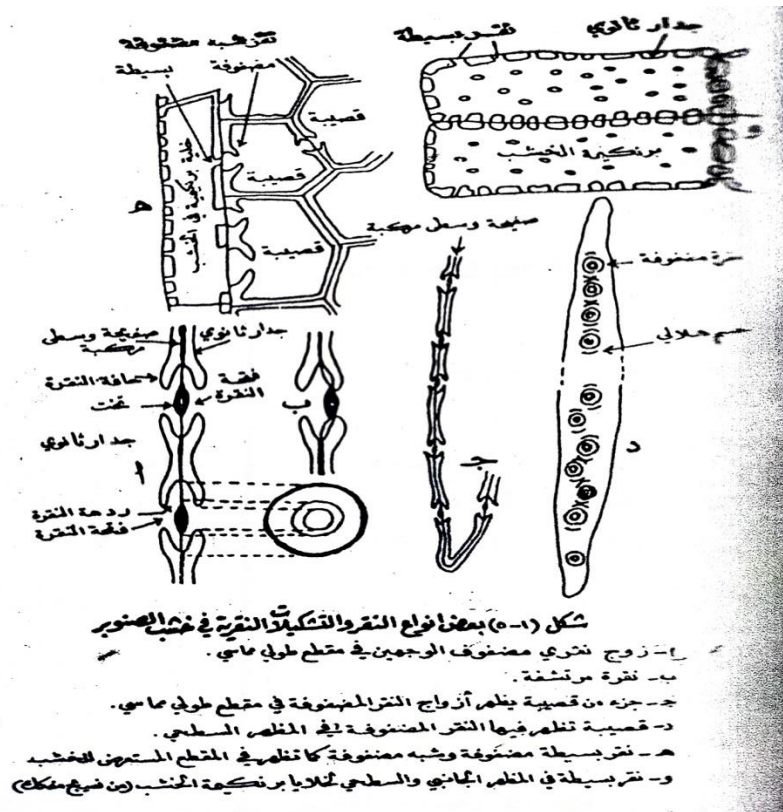 جدار ثانوي
نقر بسيطة
برنكيمة الخشب
نقر شبه مضفوفة
مضفوفة
بسيطة
قصيبة
قصيبة
قصيبة
خلية برنكيمية في الخشب
هـ
صفيحة وسطى مركبة
نقرة مضفوفة
جسم هلالي
د
جـ
جدار ثانوي
صفيحة وسطى مركبة
حافة النقرة
فتحة النقرة
تخت
ب
جدار ثانوي
أ
ردهة النقرة
فتحة النقرة
شكل (١-٥) بعض انواع النقر والتشكيلات النقرية في خشب الصنوبر
أ- زوج نقري مضفوف الوجهين في مقطع طولي مماسي .
ب- نقرة مرتشفة .
جـ- جزء من قصيبة يظهر أزواج النقر المضفوفة في مقطع طولي مماسي .
د- قصيبة تظهر فيها النقر المضفوفة في المظهر السطحي .
هـ - نقر بسيطة مضفوفة وشبه مضفوفة كما تظهر في المقطع المستعرض للخشب
و- نقر بسيطة في المظهر الجانبي والسطحي لخلايا برنكيمة الخشب